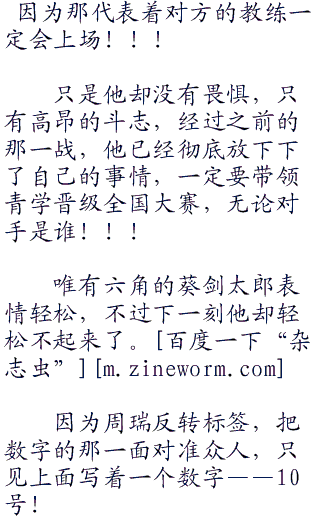 因为那代表着对方的教练一
定会上场！！！
只是他却没有畏惧，只
有高昂的斗志，经过之前的
那一战，他已经彻底放下下
了自己的事情，一定要带领
青学晋级全国大赛，无论对
手是谁！！！
唯有六角的葵剑太郎表
情轻松，不过下一刻他却轻
松不起来了。[百度一下“杂
志虫”][m.zineworm.com]
因为周瑞反转标签，把
数字的那一面对准众人，只
见上面写着一个数字——10
号！